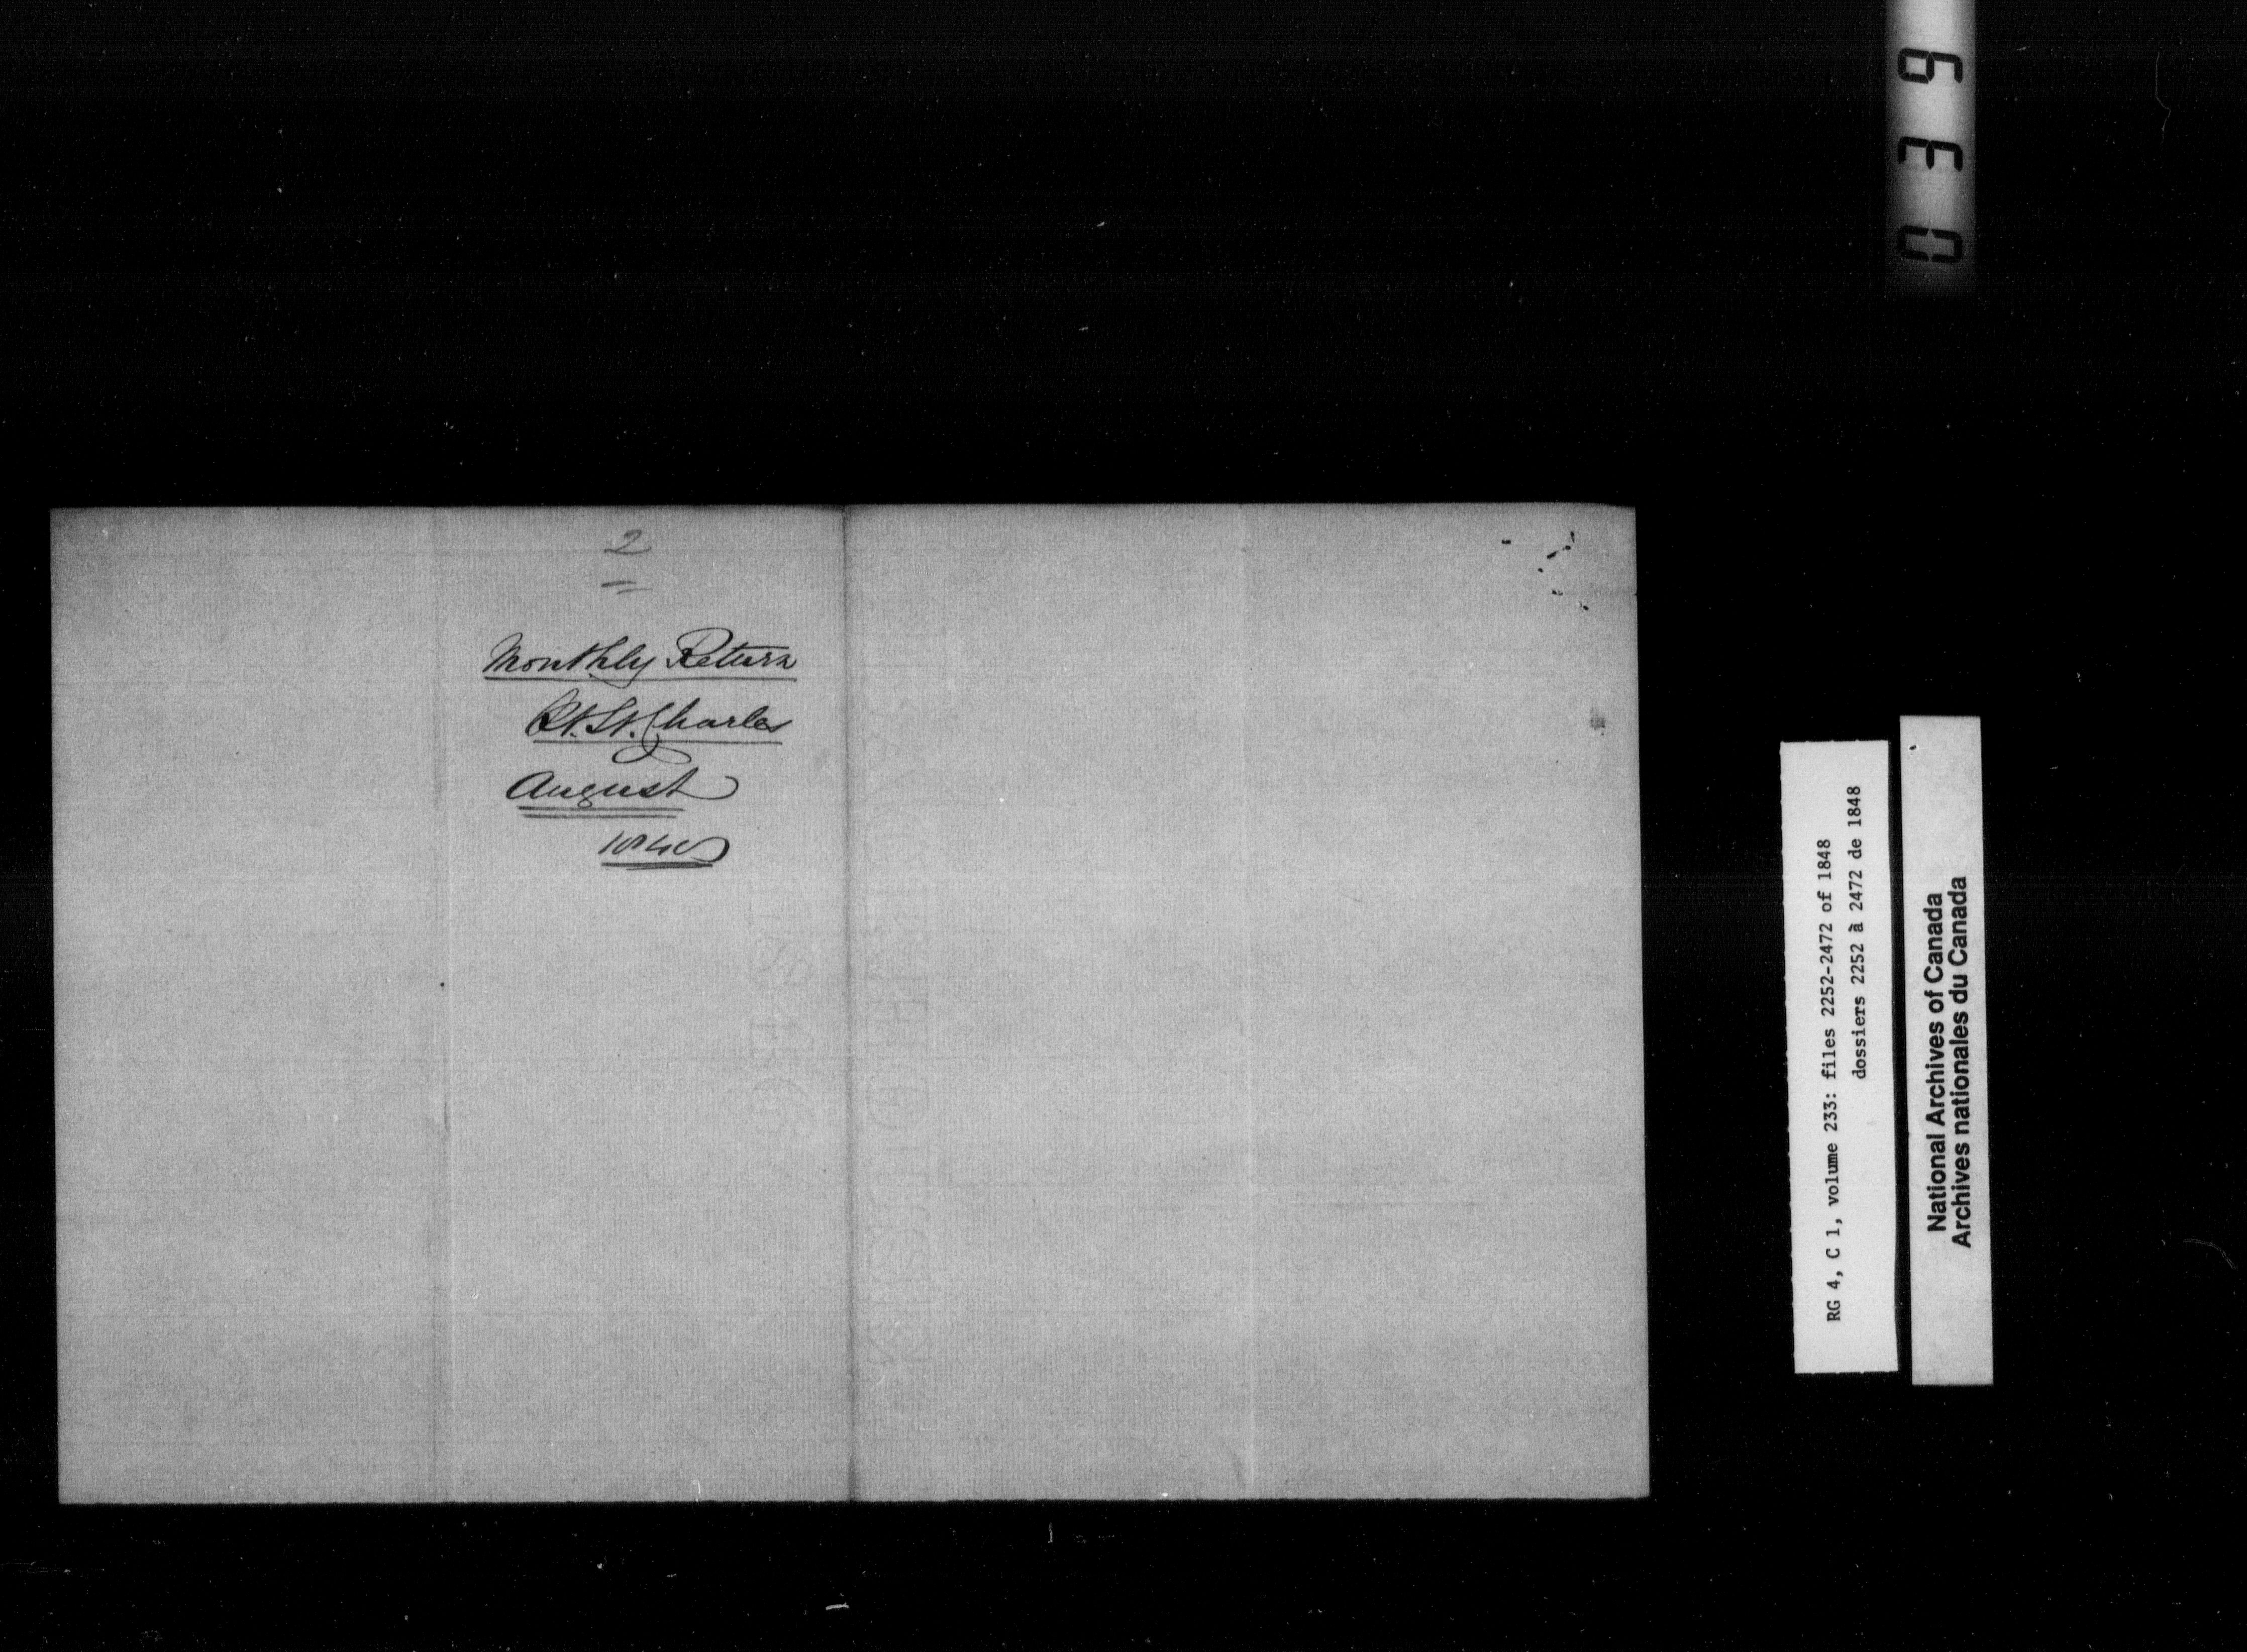 2
Monthly Return
Pt. St. Charles
August
1848
039
RG 4, C 1, volume 233: files 2252-2472 of 1848
dossiers 2252 à 2472 de 1848
National Archives of Canada
Archives nationales du Canada